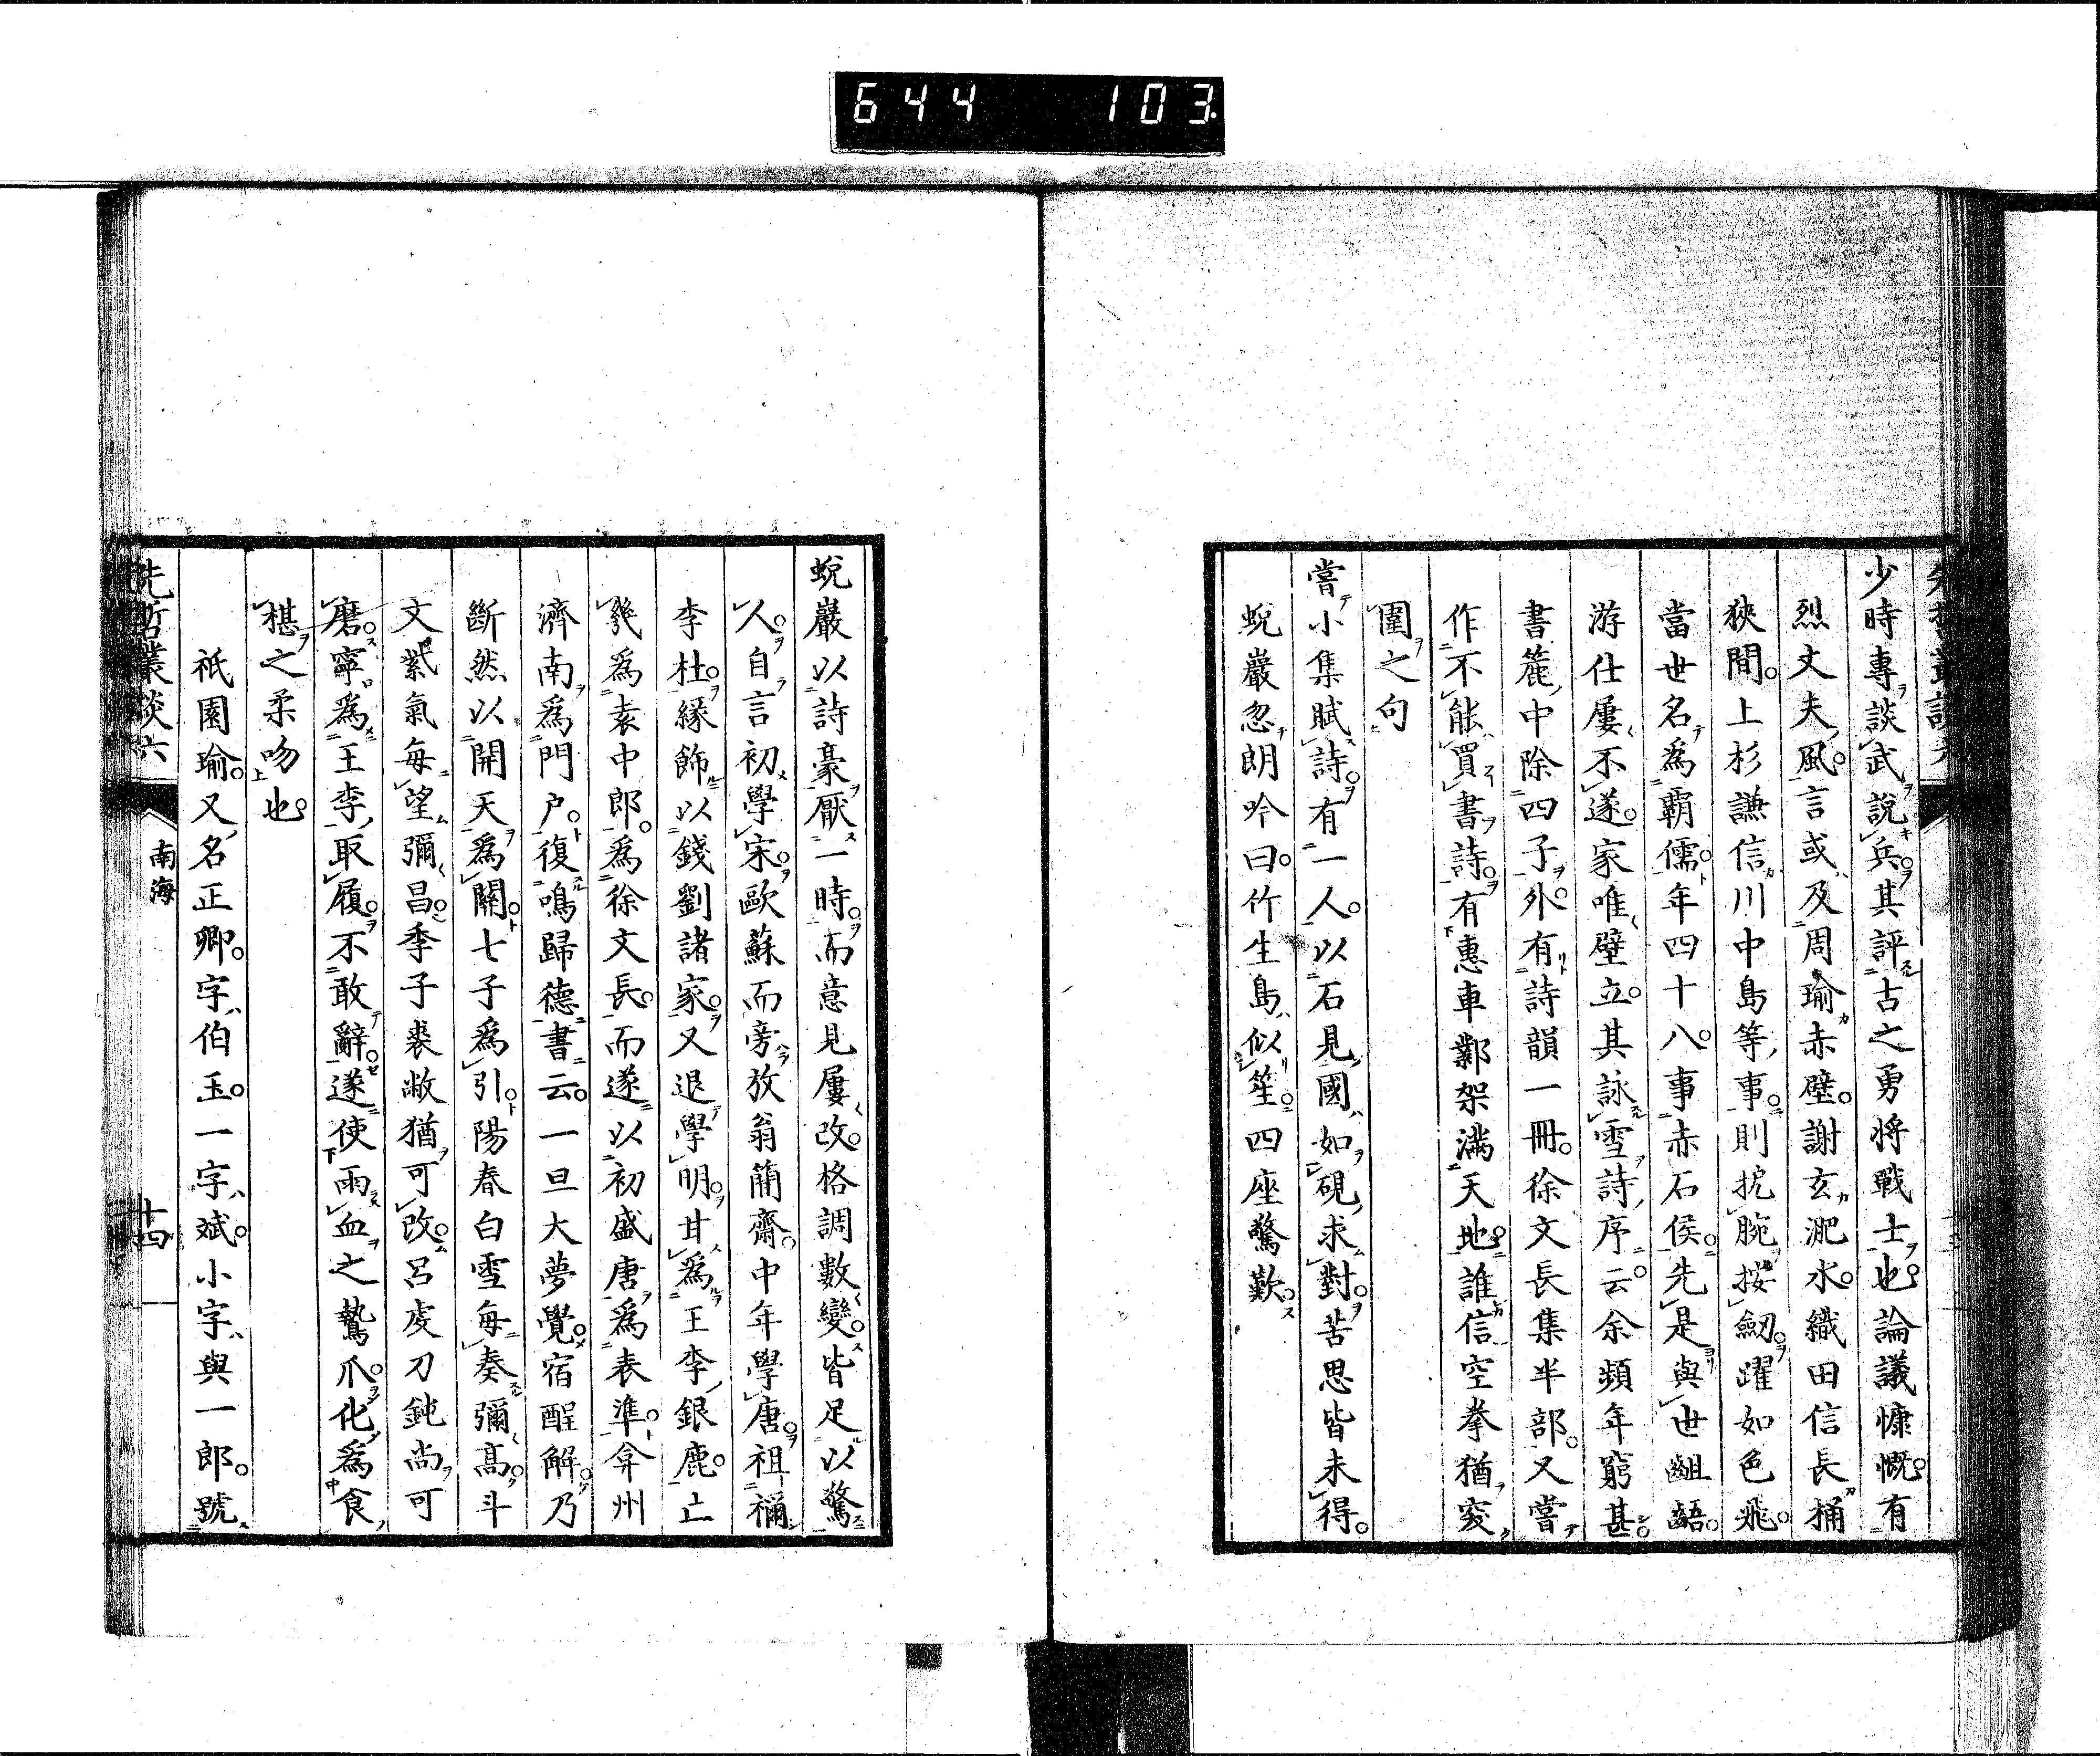 644 103
少時專談武說兵其評古之勇將戰士也論議慷慨有
烈丈夫風言或及周瑜赤壁謝玄淝水織田信長桶
狹間上杉謙信川中島等事則扼腕按劒躍如色飛
當世名爲覇儒年四十八事赤石侯先是與世齟齬
游仕屢不遂家唯壁立其詠雪詩序云余頻年窮甚
書簏中除四子外有詩韻一冊徐文長集半部又嘗
作不能買書詩有惠車鄴架滿天地誰信空拳猶突
圍之句
嘗小集賦詩有一人以石見國如硯求對苦思皆未得
蛻巖忽朗吟曰竹生島似笙四座驚歎
蛻巖以詩豪厭一時而意見屢改格調數變皆足以驚
人自言初學宋歐蘇而旁放翁簡齋中年學唐祖禰
李杜緣飾以錢劉諸家又退學明甘爲王李銀鹿亡
幾爲袁中郎爲徐文長而遂以初盛唐爲表準弇州
濟南爲門户復鳴歸德書云一旦大夢覺宿酲解乃
斷然以開天爲關七子爲引陽春白雪每奏彌高斗
文紫氣每望彌昌季子裘敝猶可改呂虔刀鈍尚可
磨寧爲王李取履不敢辭遂使雨血之鷙爪化爲食
椹之柔吻也
祇園瑜又名正卿字伯玉一字斌小字與一郎號
先哲叢談六
南海
十四